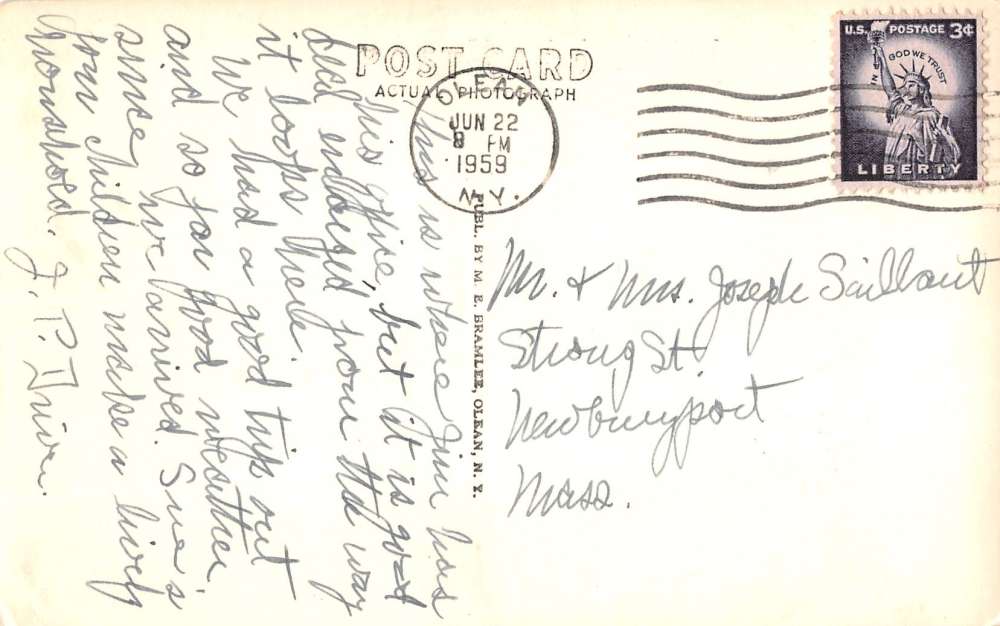 POST CARD
ACTUAL PHOTOGRAPH
OLEAN
JUN 22
8 PM
1959
N.Y.
U.S. POSTAGE 3¢
IN GOD WE TRUST
LIBERTY
This is where Jim has
his office, but it is good
deal enlarged from the way
it looks here.
We had a good trip out
and so far good weather
since we arrived. Sue's
four children make a lively
household. J. P.
PUBL. BY M. E. BRAMLEE, OLEAN, N. Y.
Mr. & Mrs. Joseph Saillant
Strong St.
Newburyport
Mass.